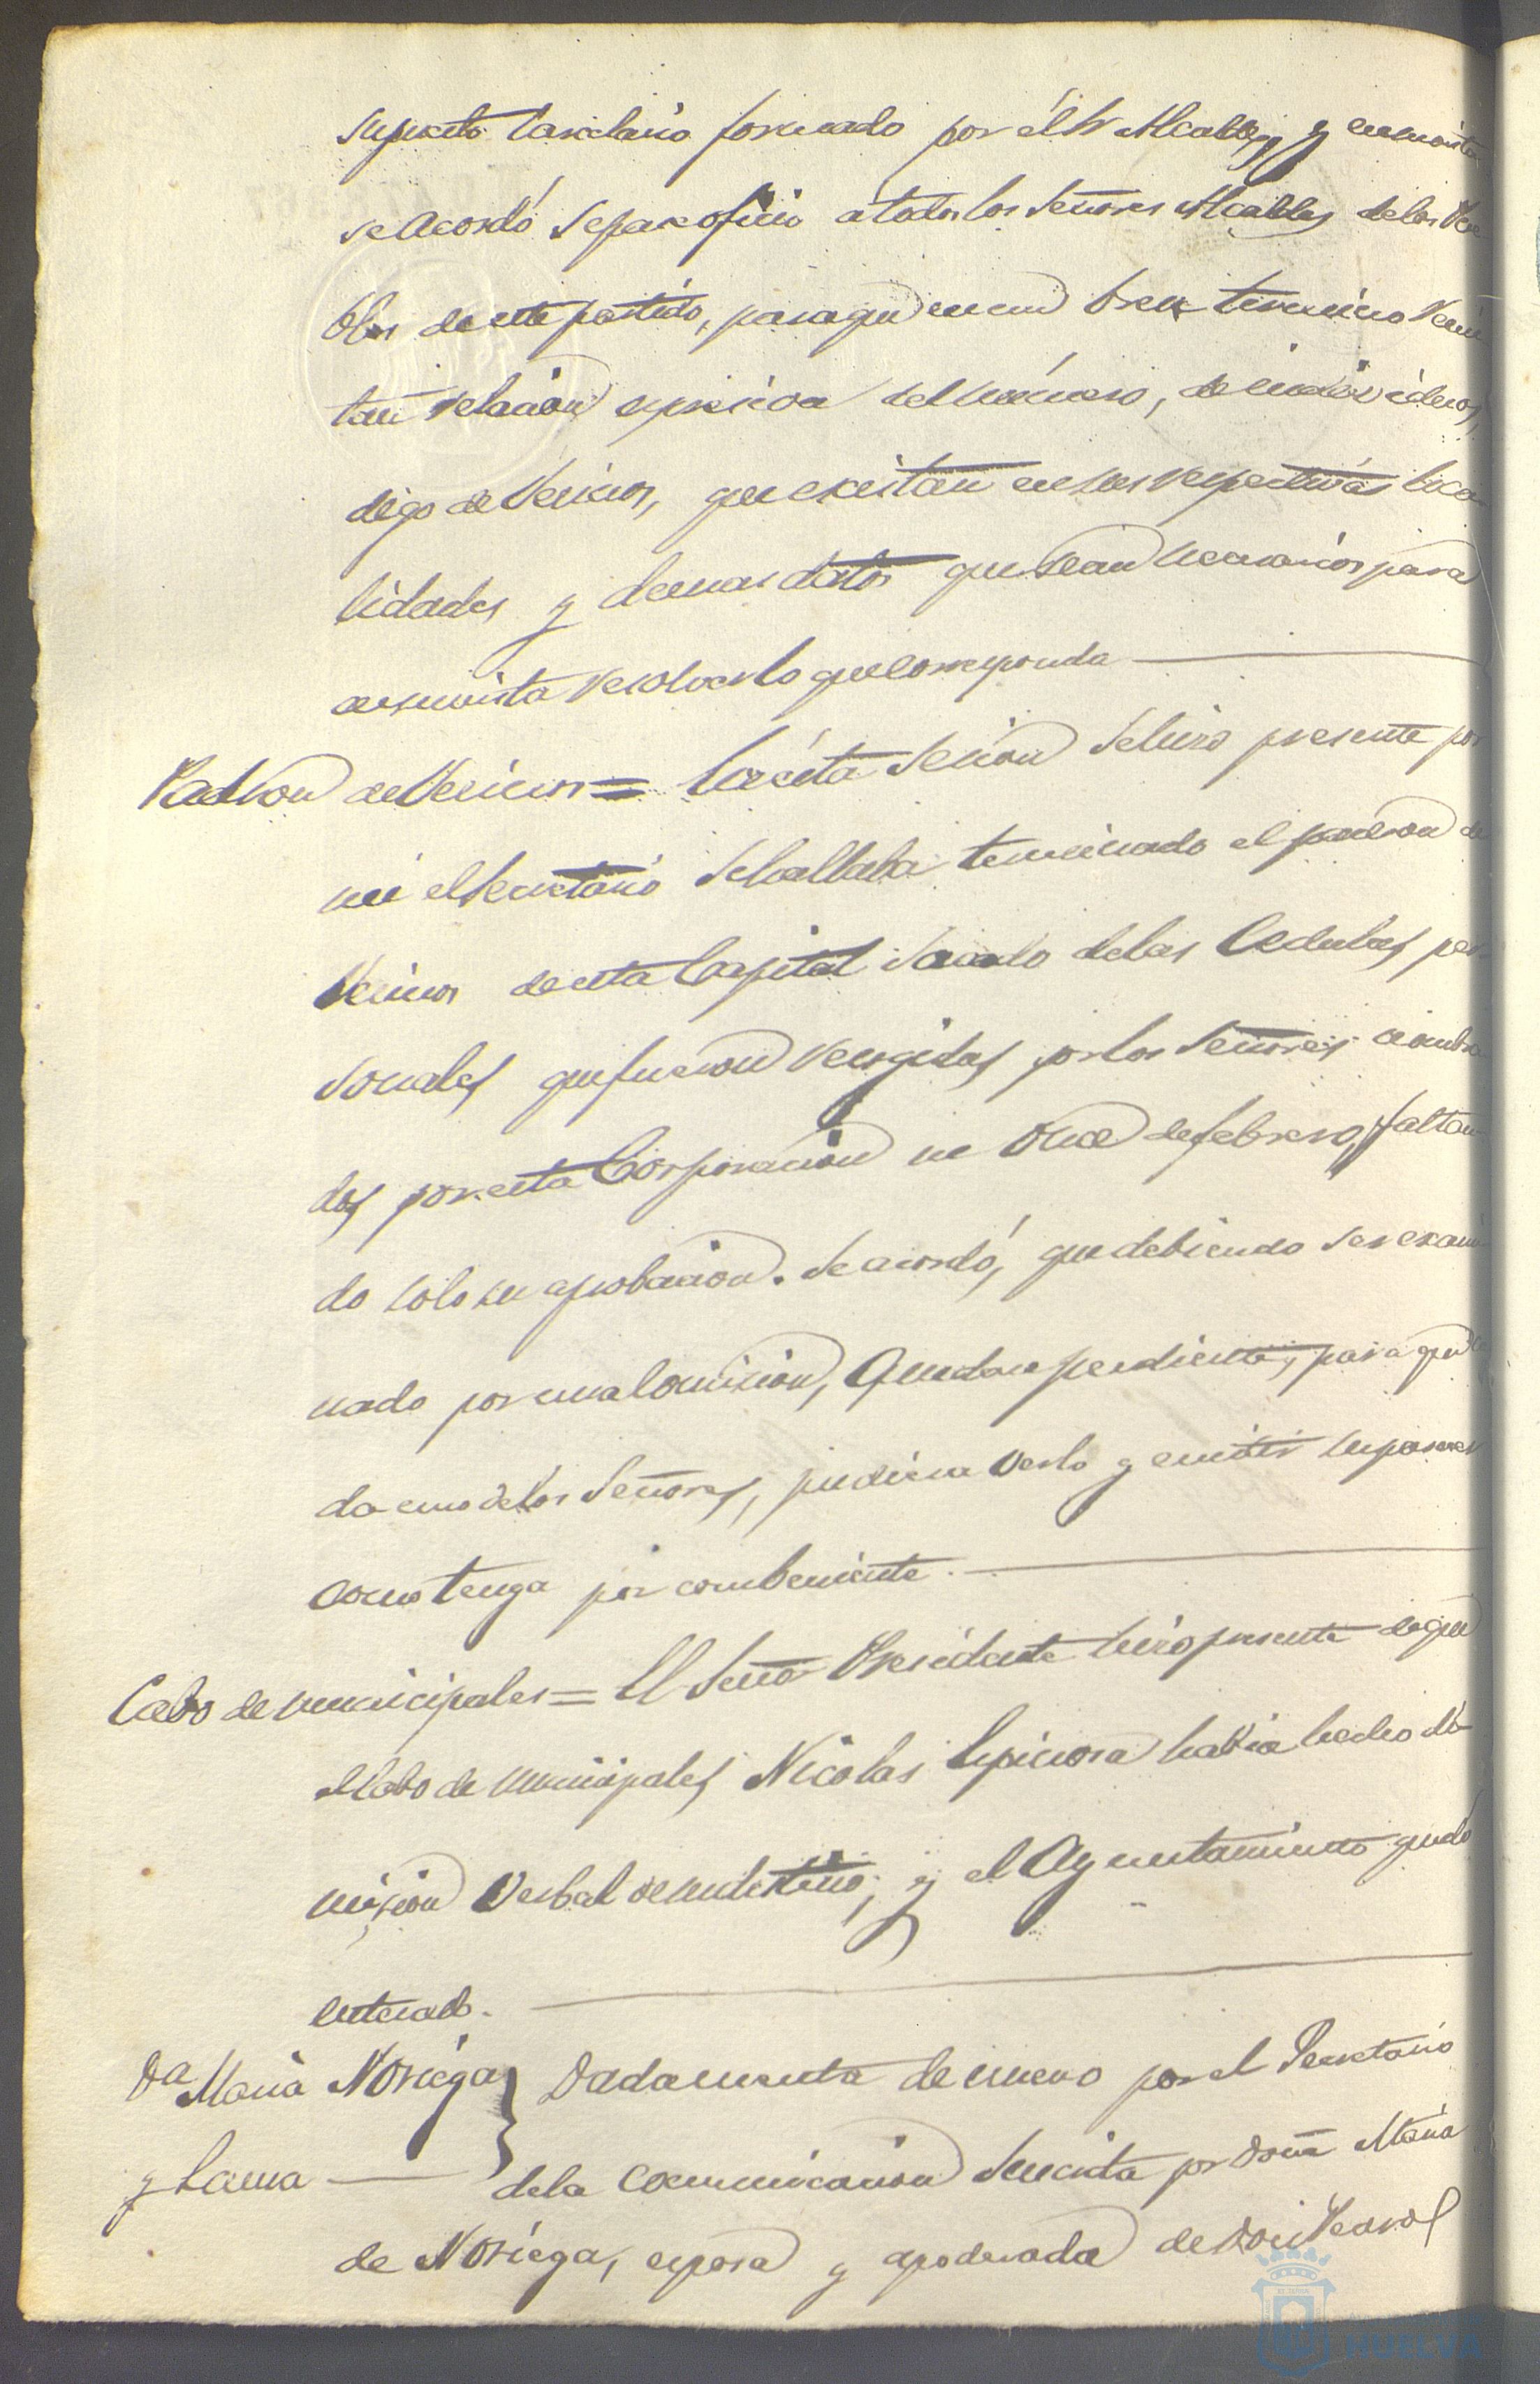 supuesto Carcelario formado por el Sr Alcalde, y en su vista
se Acordó se pase oficio a todos los Señores Alcaldes de los Pue
blos de este partido, para que en un breve termino remi
tan relacion expresiva del numero, de individuos,
digo de Vecinos, que existan en sus respectivas loca
lidades y demas datos que sean necesarios para
en su vista resolver lo que corresponda
Padron de Vecinos = En esta Sesion se hizo presente por
mi el Secretario se hallaba terminado el padron de
Vecinos de esta Capital sacado de las Cedulas per
sonales que fueron recogidas por los Señores nombra
dos por esta Corporacion en Once de febrero, faltan
do solo su aprobacion. Se acordó, que debiendo ser exami
nado por una Comision, Quedase pendiente, para que ca
da uno de los Señores, pudiera verlo y emitir su parecer
como tenga por combeniente.
Cabo de municipales = El Señor Presidente hizo presente de que
el Cabo de municipales Nicolas Espinosa habia hecho di
mision Verbal de su destino; y el Ayuntamiento quedó
enterado.
Da Maria Noriega } Dada cuenta de nuevo por el Secretario
y Lama — de la Comunicacion suscrita por Doña Maria
de Noriega, esposa y apoderada de Don
HUELVA